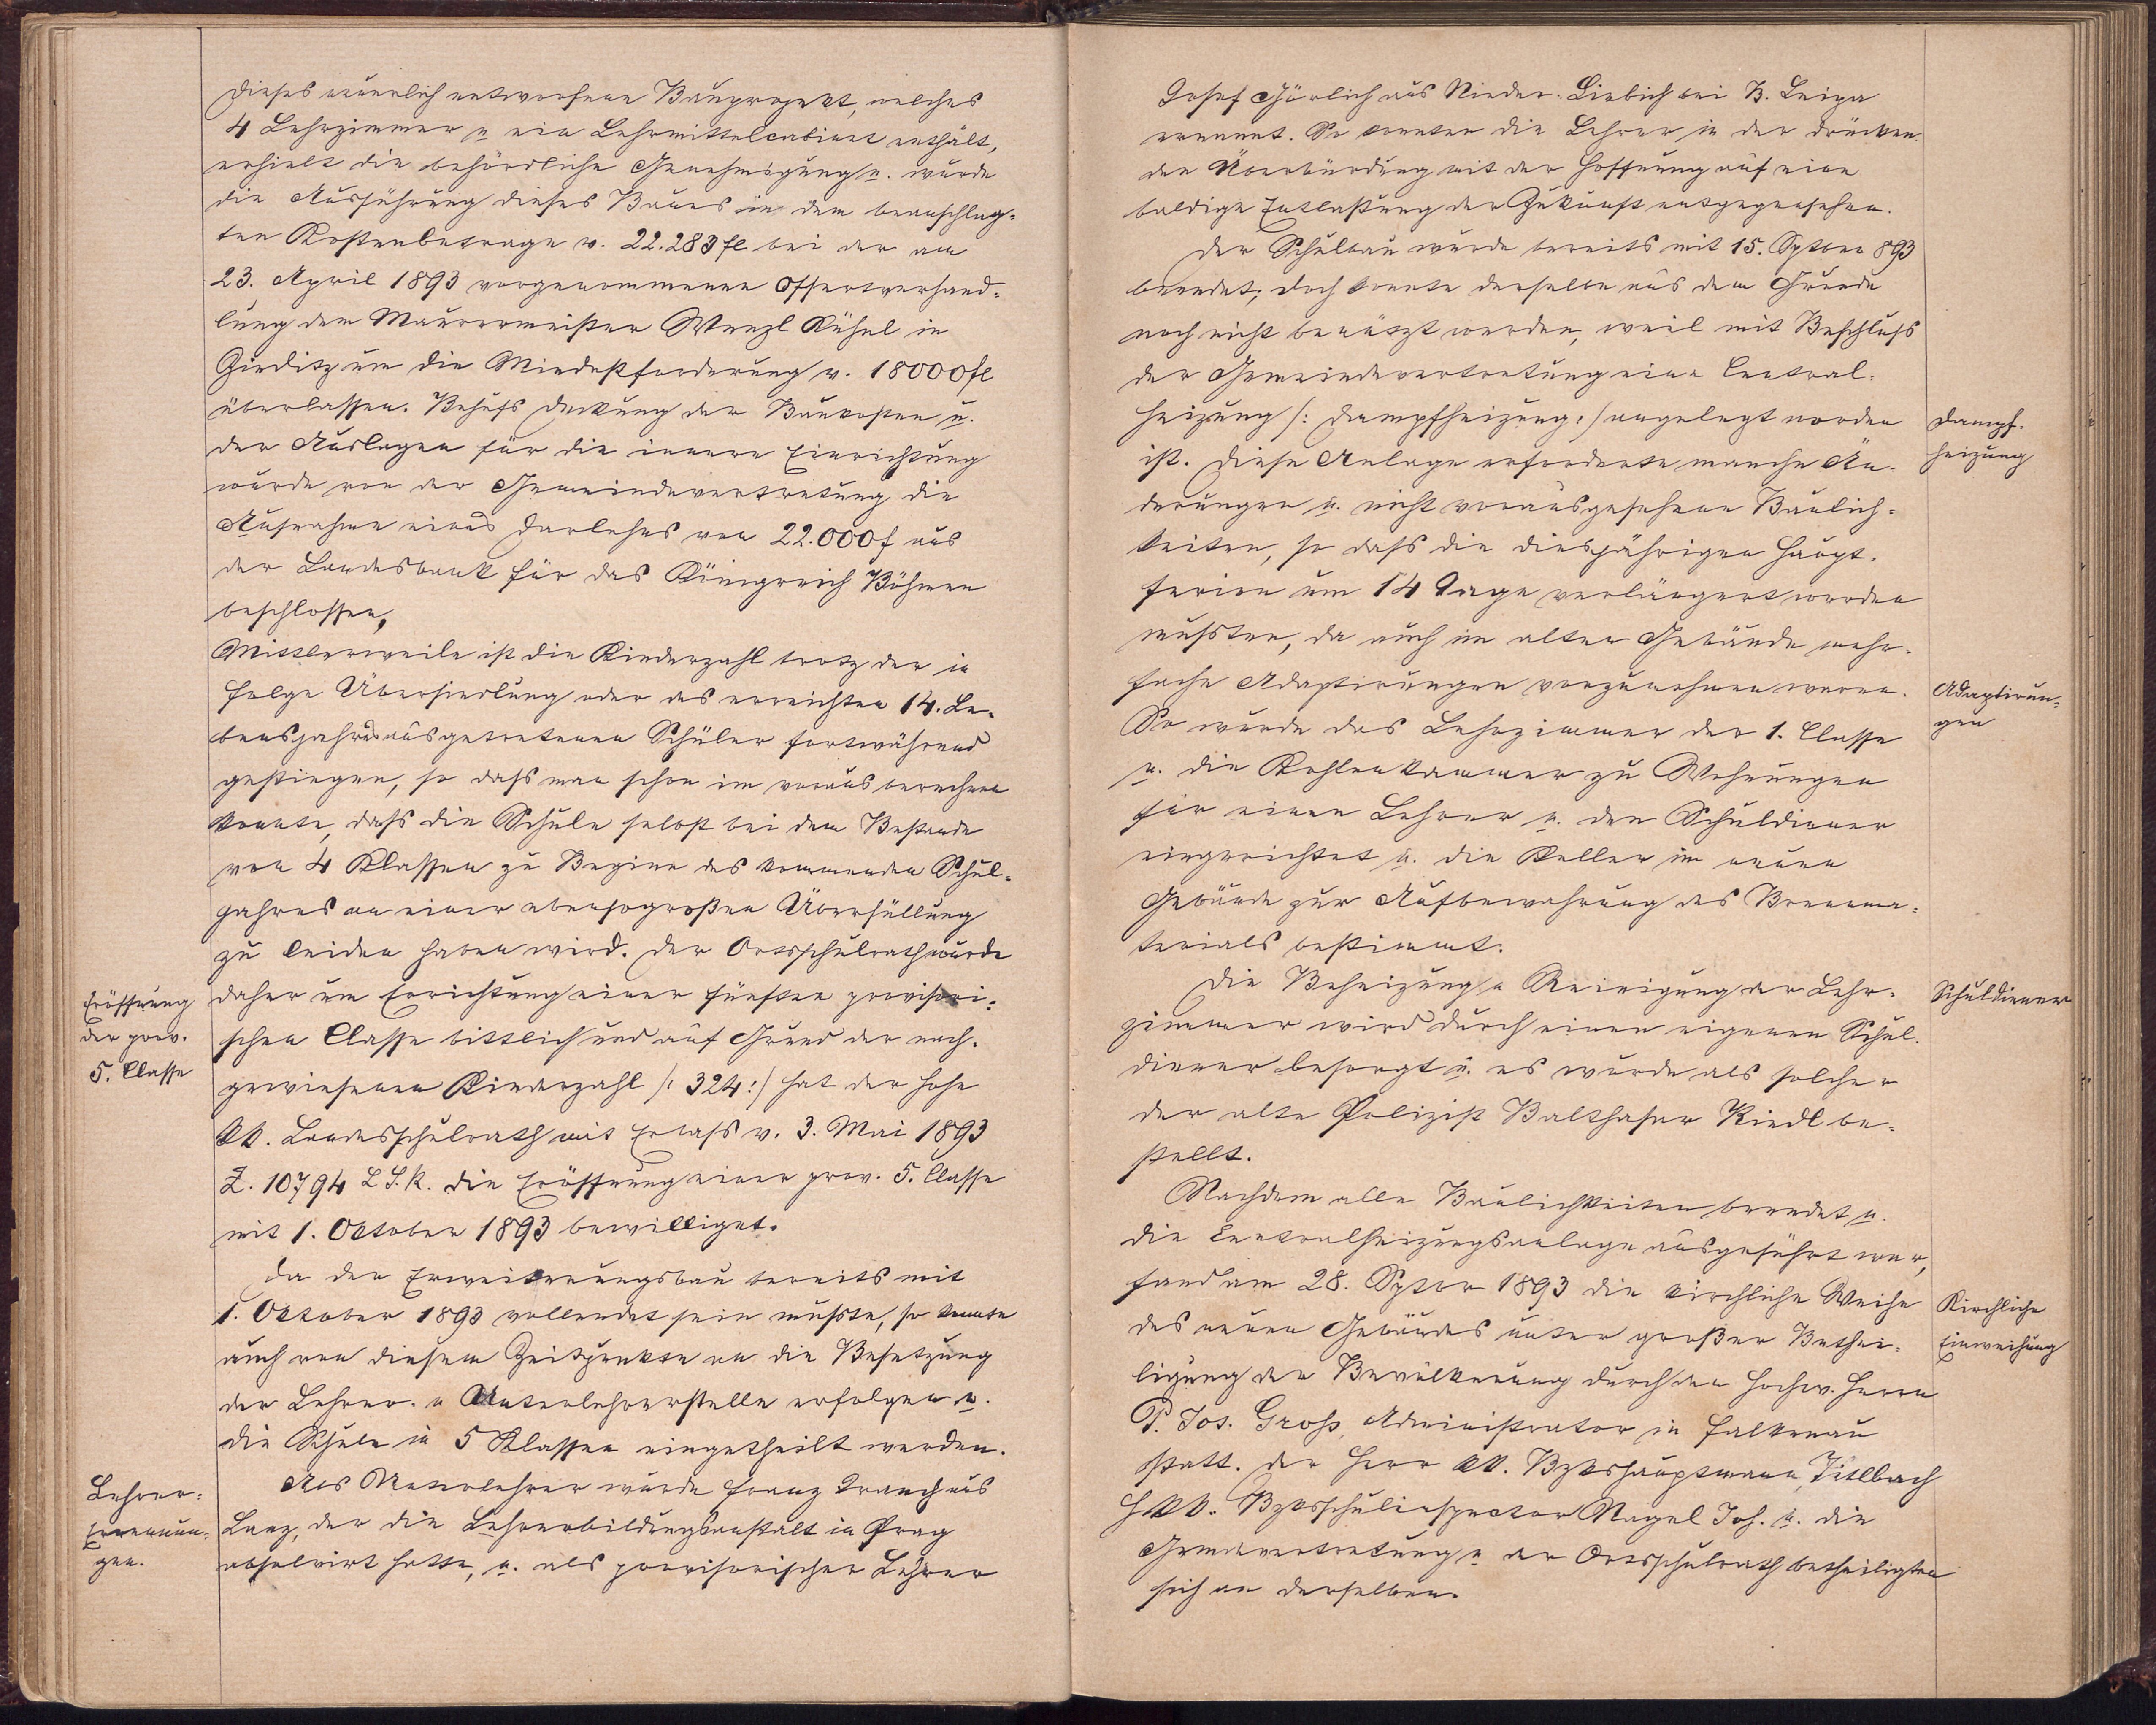 Dieses neuerlich entworfene Bauprojekt, welches
4 Lehrzimmer u ein Lehrmittelcabinet enthält,
erhielt die behördliche Genehmigung u. wurde
die Ausführung dieses Baues in dem beanschlag-
ten Kostenbetrage v. 22.283 fl bei der am
23. April 1893 vorgenommenen Offertverhand-
lung dem Maurermeister Wenzl Kühnl in
Zieditz um die Mindestforderung v. 18000 fl
überlassen. Behufs Deckung der Baukosten u.
der Auslagen für die innere Einrichtung
wurde von der Gemeindevertretung die
Aufnahme eines Darlehns von 22.000 f aus
der Landesbank für das Königreich Böhmen
beschlossen,
Mittlerweile ist die Kinderzahl trotz der in
Folge Übersiedlung oder des erreichten 14. Le-
bensjahres ausgetretenen Schüler fortwährend
gestiegen, so dass man schon im voraus berechnen
konnte, dass die Schule selbst bei dem Bestande
von 4 Klassen zu Beginn des kommenden Schul-
jahres an einer ebensogroßen Überfüllung
zu leiden haben wird. Der Ortsschulrath wurde
Eröffnung
der prov.
5. Classe
daher um Errichtung einer fünften provisori-
schen Classe bittlich und auf Grund der nach-
gewiesenen Kinderzahl /: 324 :/ hat der hohe
kk. Landesschulrath mit Erlass v. 3. Mai 1893
Z. 10794 L.S.R. die Eröffnung einer prov. 5. Classe
mit 1. Oktober 1893 bewilliget.
Da der Erweiterungsbau bereits mit
1. Oktober 1893 vollendet sein musste, so konnte
auch von diesem Zeitpunkte an die Besetzung
der Lehrer- u Unterlehrerstelle erfolgen u.
die Schule in 5 Klassen eingetheilt werden.
Lehrer-
Ernennun-
gen.
Als Unterlehrer wurde Franz Trauch aus
Lanz, der die Lehrerbildungsanstalt in Prag
absolvirt hatte, u. als provisorischer Lehrer
Josef Görlich aus Nieder-Liebich bei B. Leipa
ernannt. So konnten die Lehrer in der drücken-
den Überbürdung mit der Hoffnung auf eine
baldige Entlastung der Zukunft entgegensehen.
Der Schulbau wurde bereits mit 15. Septber 893
beendet; doch konnte derselbe aus dem Grunde
noch nicht benützt werden, weil mit Beschluss
der Gemeindevertretung eine Central-
heizung /: Dampfheizung :/ angelegt worden
Dampf-
heizung
ist. Diese Anlage erforderte manche Än-
derungen u. nicht vorausgesehene Baulich-
keiten, so dass die diesjährigen Haupt-
ferien um 14 Tage verlängert werden
mussten, da auch im alten Gebäude mehr-
fache Adaptirungen vorzunehmen waren.
Adaptirun-
gen
So wurde das Lehrzimmer der 1. Classe
u. die Kohlenkammer zu Wohnungen
für einen Lehrer u. den Schuldiener
eingerichtet u. die Keller im neuen
Gebäude zur Aufbewahrung des Brennma-
terials bestimmt.
Die Beheizung u Reinigung der Lehr-
Schuldiener
zimmer wird durch einen eigenen Schul-
diener besorgt u. es wurde als solcher
der alte Polizist Balthasar Riedl be-
stellt.
Nachdem alle Baulichkeiten beendet u.
die Centralheizungsanlage ausgeführt war,
fand am 28. Septbr 1893 die kirchliche Weihe
Kirchliche
Einweihung
des neuen Gebäudes unter großer Bethei-
ligung der Bevölkerung durch den Hochw. Herrn
P. Jos. Gross, Administrator in Falkenau
statt. Der Herr kk. Bzkshauptmann, Titlbach
H kk. Bzksschulinspector Nagel Joh. u. die
Gemdevertretung u der Ortsschulrath betheiligten
sich an derselben.